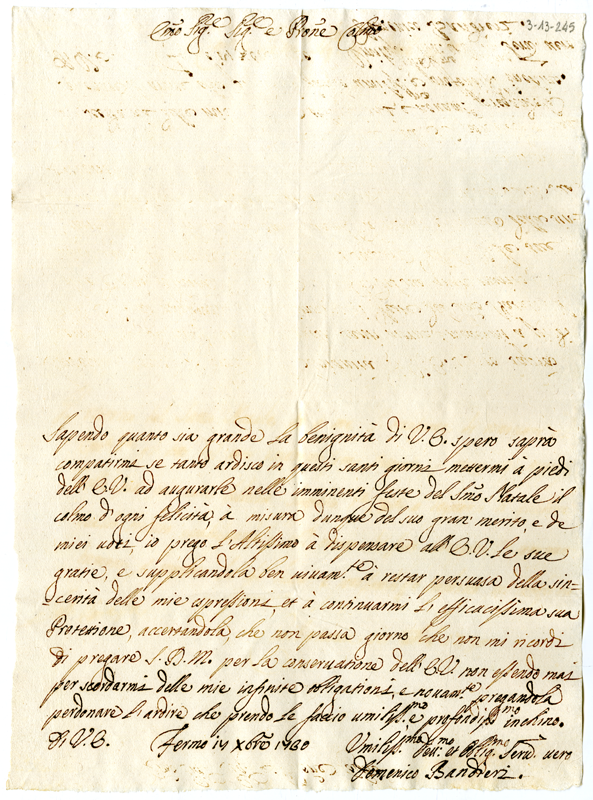 3-13-245
Em̃o Sig.re Sig.re e Prõne Col.mo
Sapendo quanto sia grande la benignità di V. E. spero saprà
compatirmi se tanto ardisco in questi santi giorni mettermi à piedi
dell'E.V. ad augurarle nelle imminenti feste del Sm̃o Natale il
colmo d'ogni felicità, à misura dunque del suo gran merito, e de
miei voti, io prego l'Altissimo à dispensare all'E.V. le sue
gratie, e supplicandola ben vivam.te à restar persuasa della sin=
cerità delle mie espressioni, et à continuarmi l'efficacissima sua
Protetione, accertandola che non passa giorno che non mi ricordi
di pregare S. D. M. per la conservatione dell'E.V. non essendo mai
per scordarmi delle mie infinite obligationi, e novam.te pregandola
perdonare l'ardire che prendo le faccio umiliss.mo e profondiss.mo inchino.
Di V. E. Fermo 14 Xbre 1730 Umiliss.mo Dev.mo et Oblig.mo Serv. vero
Domenico Bandieri.